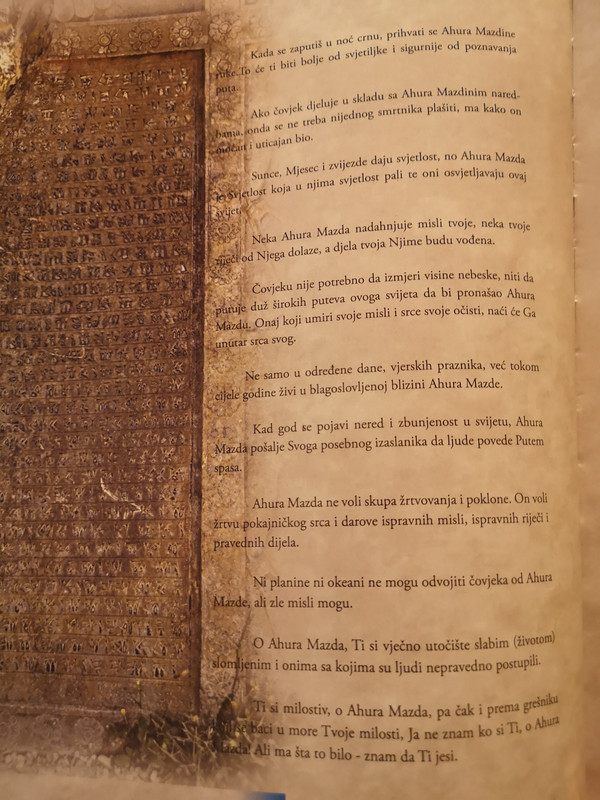 Kada se zaputiš u noć crnu, prihvati se Ahura Mazdine
ruke. To će ti biti bolje od svjetiljke i sigurnije od poznavanja
puta.
Ako čovjek djeluje u skladu sa Ahura Mazdinim nared-
bama, onda se ne treba nijednog smrtnika plašiti, ma kako on
moćan i uticajan bio.
Sunce, Mjesec i zvijezde daju svjetlost, no Ahura Mazda
je Svjetlost koja u njima svjetlost pali te oni osvjetljavaju ovaj
svijet.
Neka Ahura Mazda nadahnjuje misli tvoje, neka tvoje
riječi od Njega dolaze, a djela tvoja Njime budu vođena.
Čovjeku nije potrebno da izmjeri visine nebeske, niti da
putuje duž širokih puteva ovoga svijeta da bi pronašao Ahura
Mazdu. Onaj koji umiri svoje misli i srce svoje očisti, naći će Ga
unutar srca svog.
Ne samo u određene dane, vjerskih praznika, već tokom
cijele godine živi u blagoslovljenoj blizini Ahura Mazde.
Kad god se pojavi nered i zbunjenost u svijetu, Ahura
Mazda pošalje Svoga posebnog izaslanika da ljude povede Putem
spasa.
Ahura Mazda ne voli skupa žrtvovanja i poklone. On voli
žrtvu pokajničkog srca i darove ispravnih misli, ispravnih riječi i
pravednih dijela.
Ni planine ni okeani ne mogu odvojiti čovjeka od Ahura
Mazde, ali zle misli mogu.
O Ahura Mazda, Ti si vječno utočište slabim (životom)
slomljenim i onima sa kojima su ljudi nepravedno postupili.
Ti si milostiv, o Ahura Mazda, pa čak i prema grešniku
se baci u more Tvoje milosti, Ja ne znam ko si Ti, o Ahura
Mazda! Ali ma šta to bilo - znam da Ti jesi.